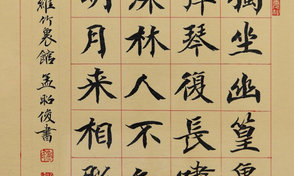 獨坐幽篁裏
彈琴復長嘯
深林人不知
明月来相照
維竹裏館 孟昭俊書